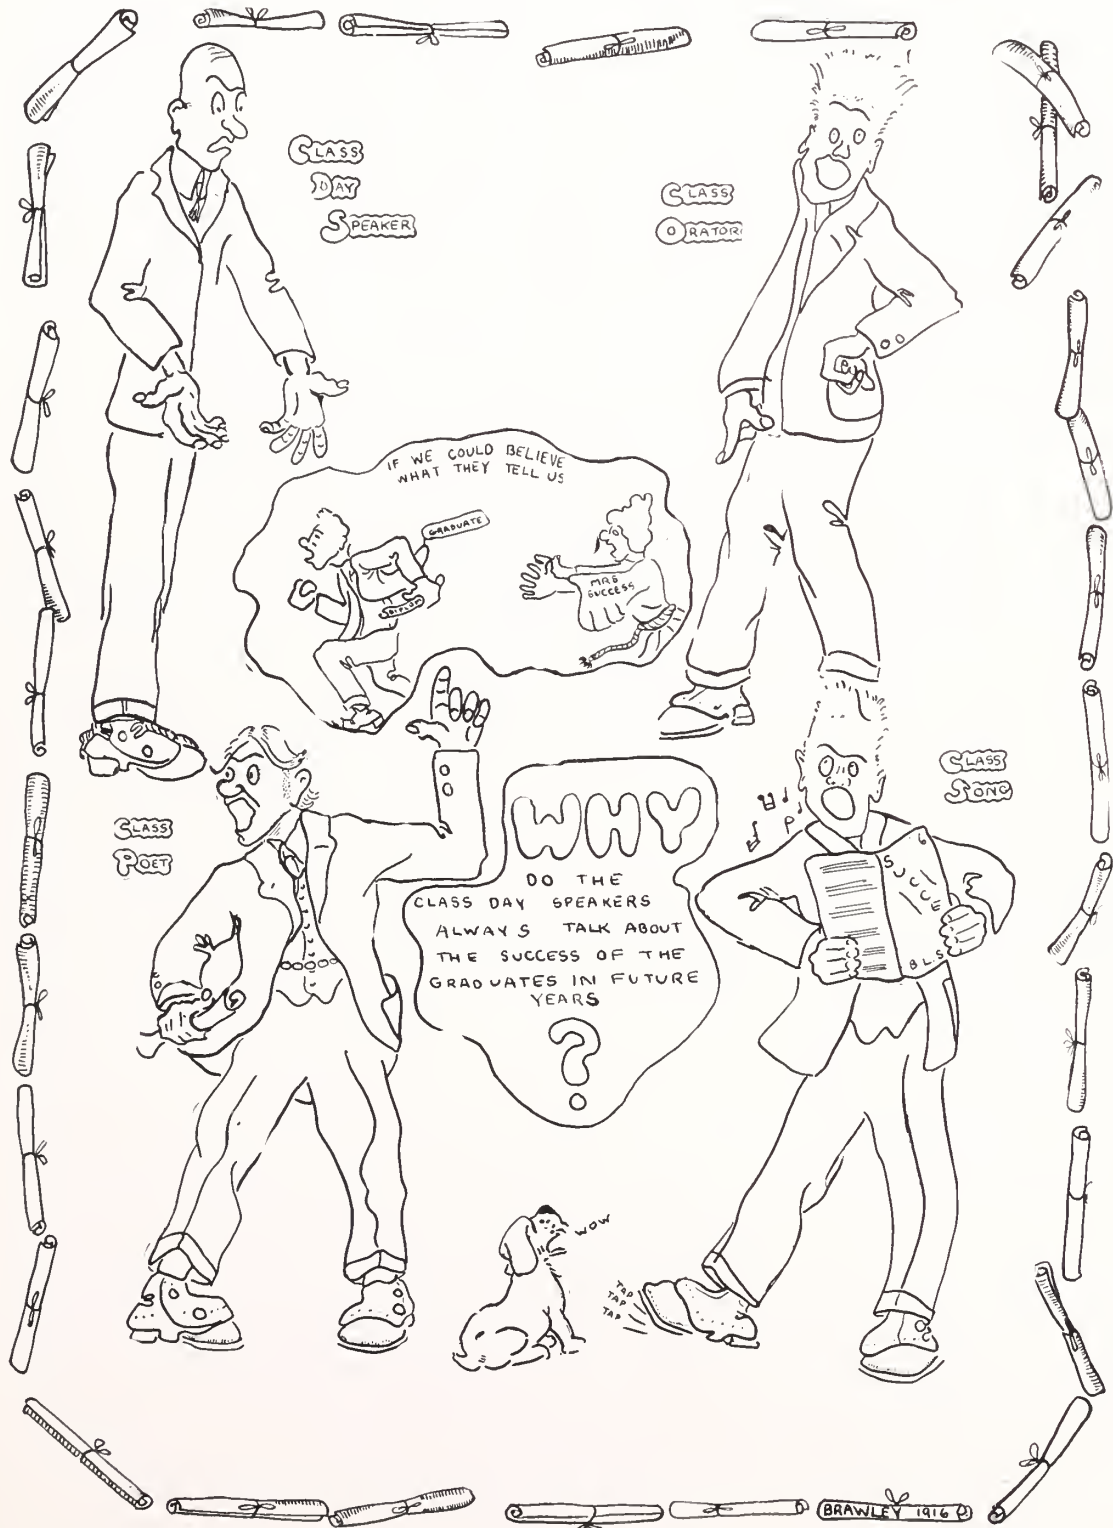 CLASS
DAY
SPEAKER
CLASS
ORATOR
IF WE COULD BELIEVE
WHAT THEY TELL US
GRADUATE
DIPLO
MRS
SUCCESS
CLASS
POET
WHY
DO THE
CLASS DAY SPEAKERS
ALWAYS TALK ABOUT
THE SUCCESS OF THE
GRADUATES IN FUTURE
YEARS
?
CLASS
SONG
SUCCE
B.L.S
WOW
TAP
TAP
TAP
BRAWLEY 1916